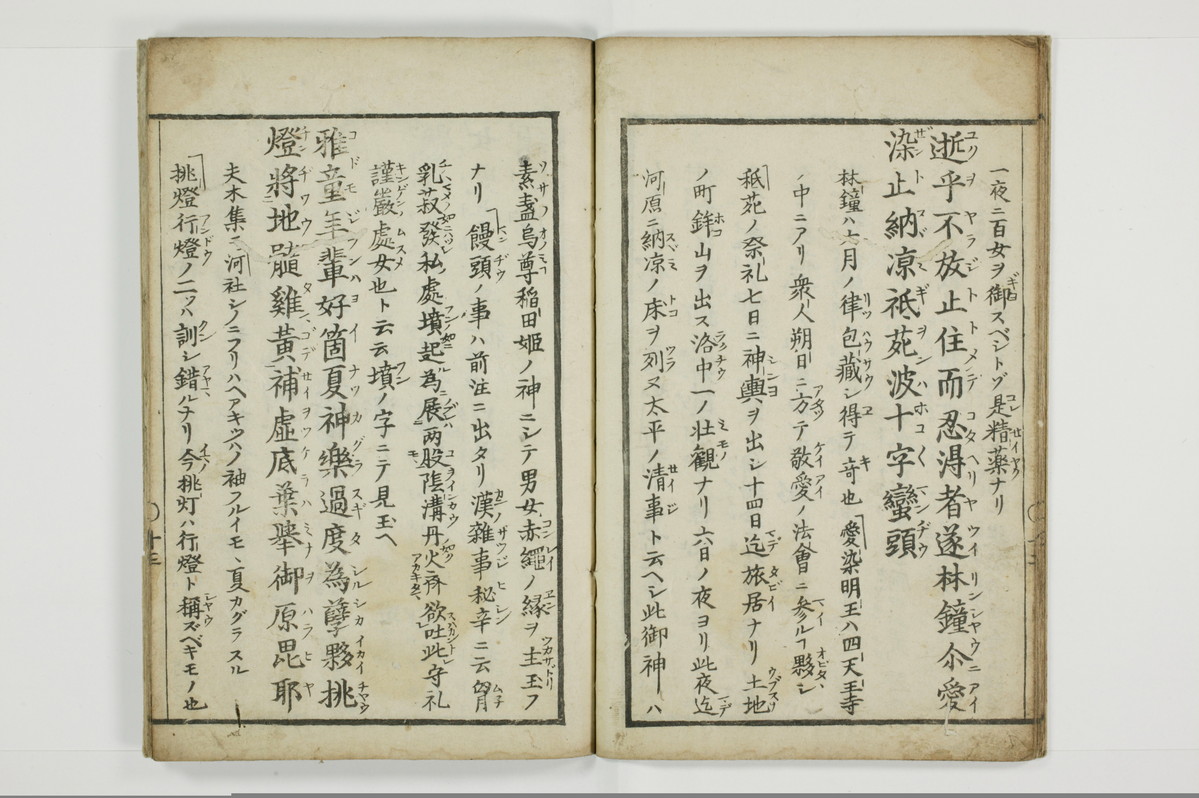 一夜ニ百女ヲ御スベシトゾ是精薬ナリ
逝乎不放止住而忍淂者遂林鐘尒愛
染止納凉祇苑波十字蠻頭
林鐘ハ六月ノ律包藏シ得テ竒也「愛染明王ハ四天王寺
ノ中ニアリ衆人朔日ニ方テ敬愛ノ法會ニ參ルフ夥シ
「祇苑ノ祭礼七日ニ神輿ヲ出シ十四日迄旅居ナリ土地
ノ町鉾山ヲ出ス洛中一ノ壮観ナリ六日ノ夜ヨリ此夜迄
河原ニ納凉ノ床ヲ列ヌ太平ノ清事ト云ヘシ此御神ハ
素盞烏尊稲田姫ノ神ニシテ男女赤繩ノ縁ヲ主玉フ
ナリ「饅頭ノ事ハ前注ニ出タリ漢雜事秘辛ニ云胷
乳菽發私處墳起為展两股陰溝丹火齊欲吐此守礼
謹嚴處女也ト云云墳ノ字ニテ見玉ヘ
雅童年輩好箇夏神樂過度為孽夥挑
燈將地髄雞黄補虚底葉舉御原毘耶
夫木集ニ河社シノニヲリハヘアキツハノ袖フルイモ夏カグラスル
「挑燈行燈ノ二ツハ訓シ錯ルナリ今挑灯ハ行燈ト稱ズベキモノ也
十三